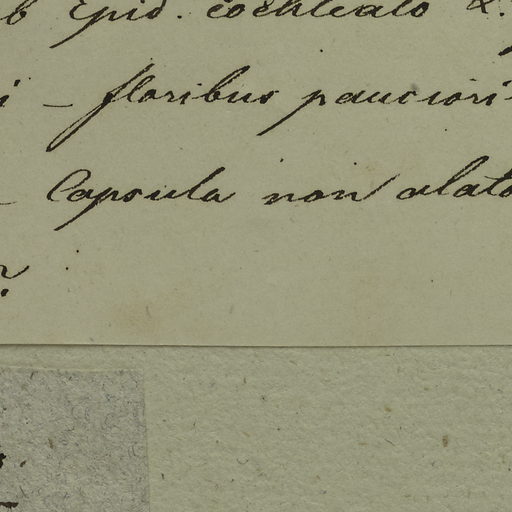 b Epid. cochleato &.
i – floribus pauciori
– Capsula non alata